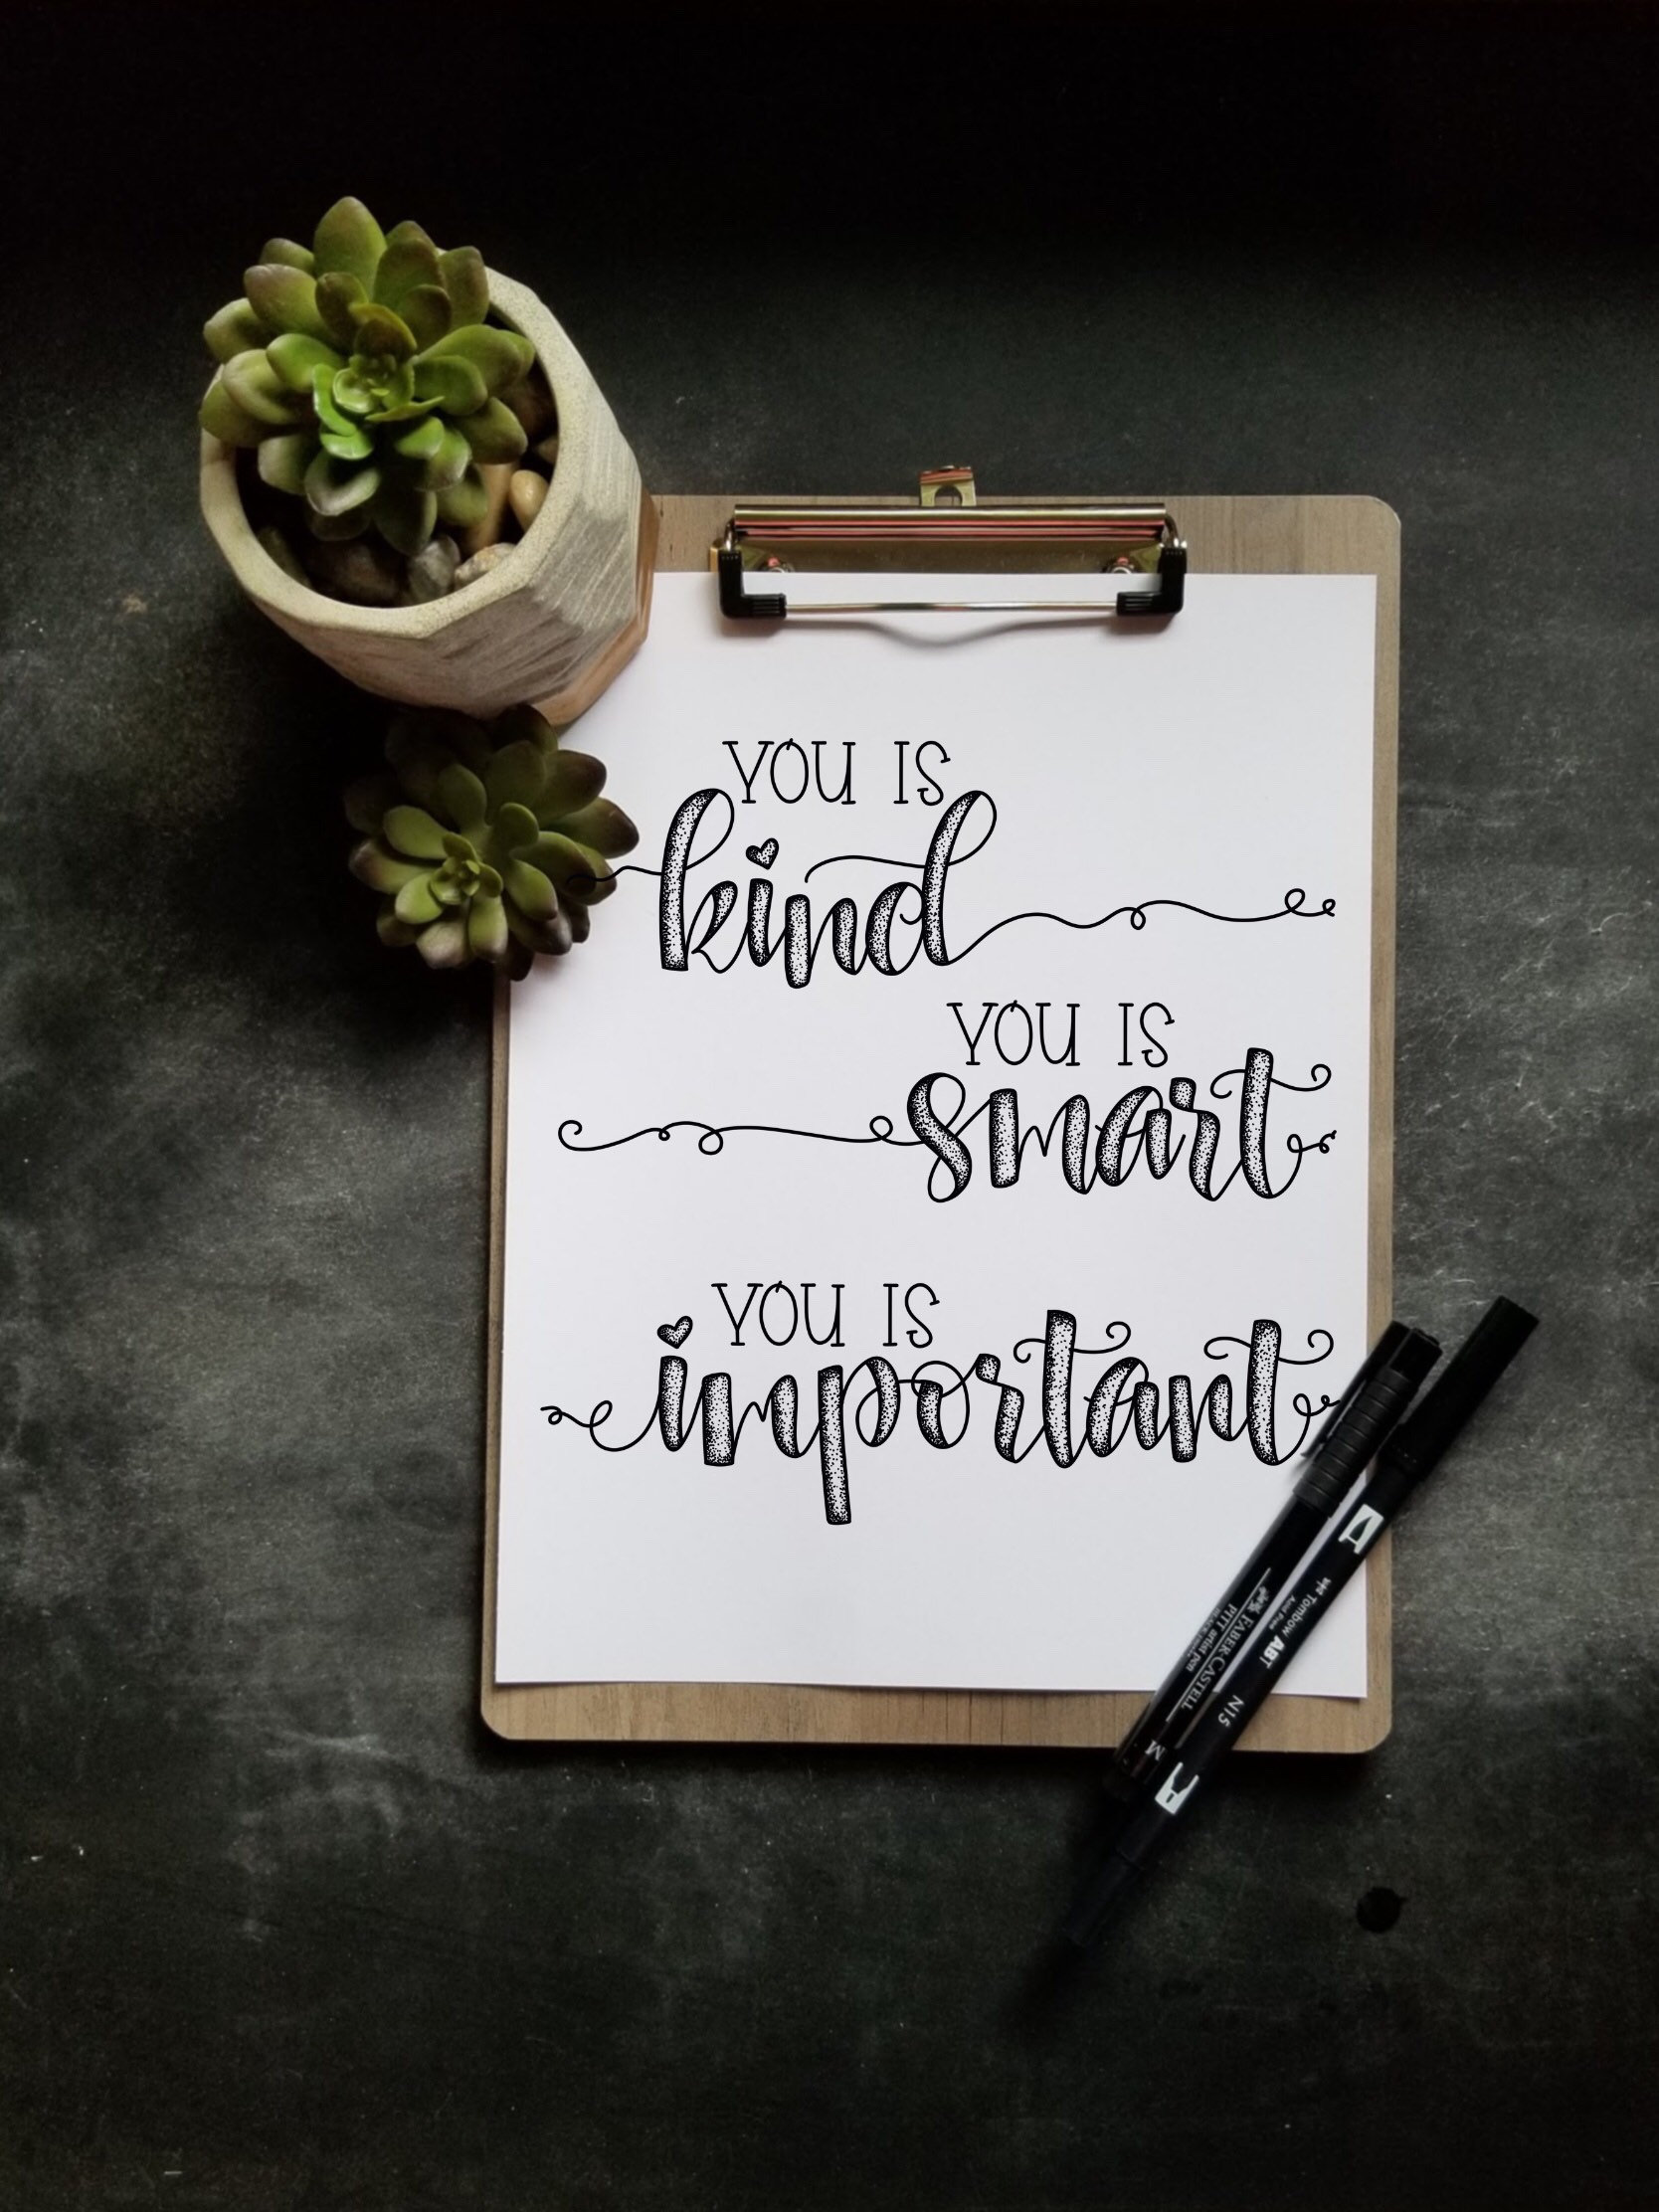 YOU IS
kind
YOU IS
smart
YOU IS
important
FABER-CASTELL
PITT artist pen
M
Tombow ABT
Acid Free
N15